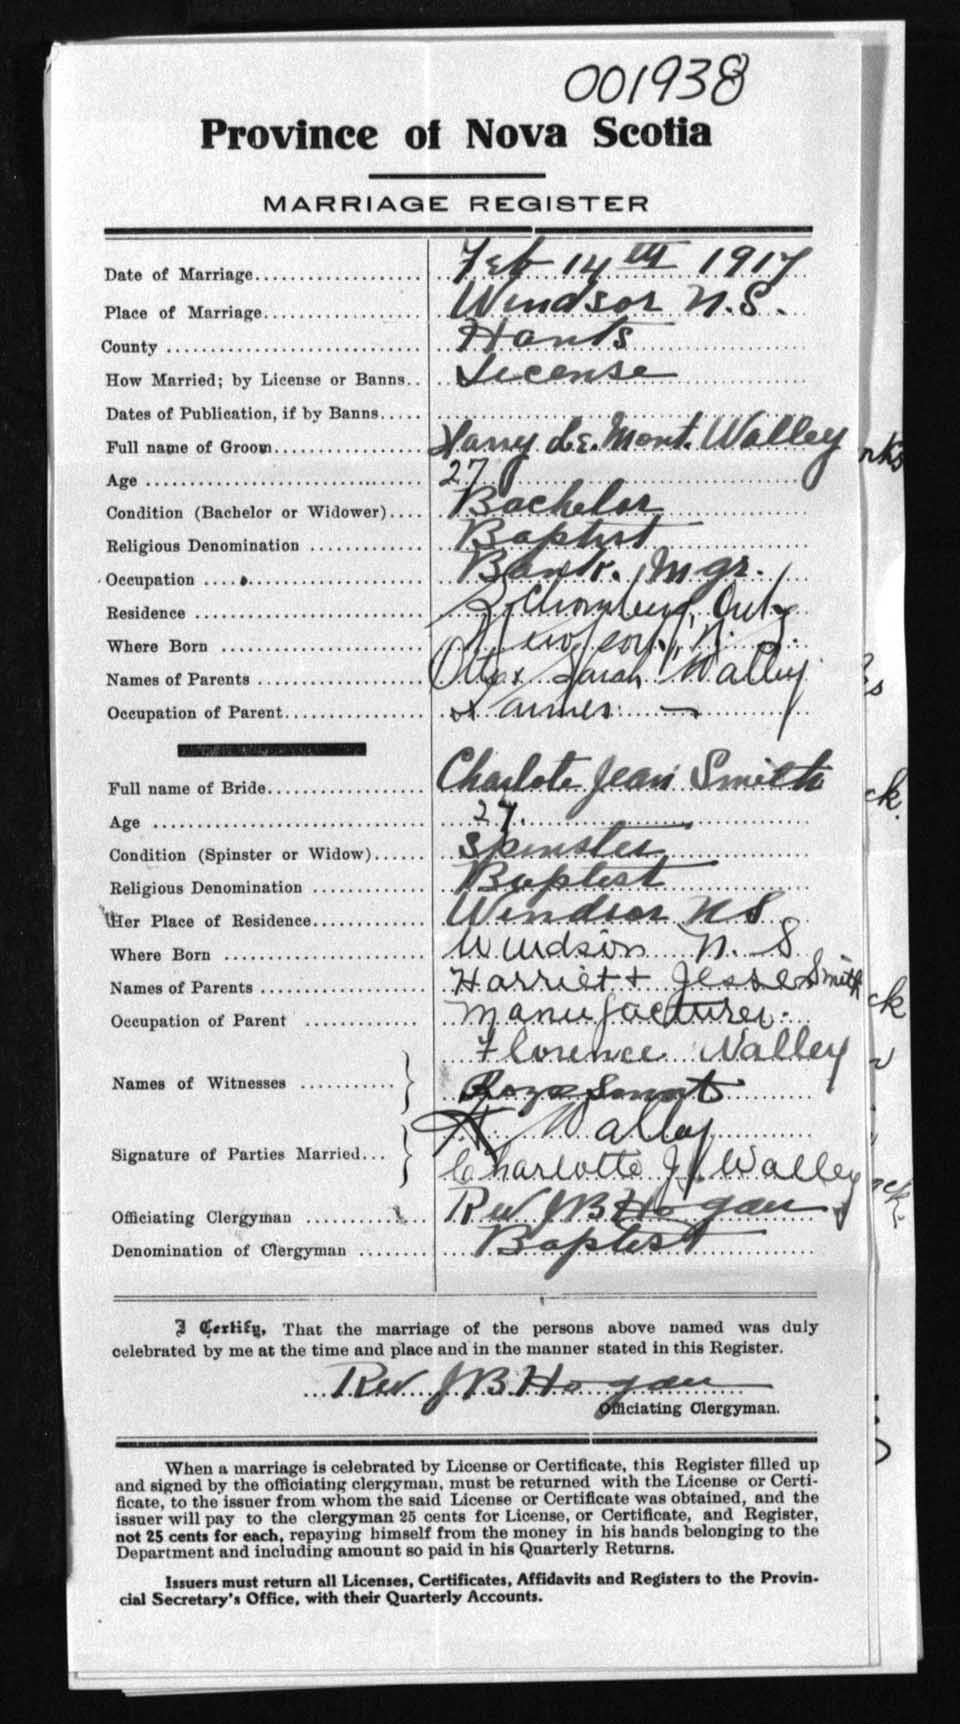 001938
Province of Nova Scotia
MARRIAGE REGISTER
Date of Marriage Feb 14th 1917
Place of Marriage Windsor N.S.
County Hants
How Married; by License or Banns License
Dates of Publication, if by Banns
Full name of Groom Harry De. Mont. Walley
Age 27
Condition (Bachelor or Widower) Bachelor
Religious Denomination Baptist
Occupation Bank. Mgr.
Residence Schomberg, Ont
Where Born N. S.
Names of Parents Otto + Sarah Walley
Occupation of Parent Farmer
Full name of Bride Charlote Jean Smith
Age 27.
Condition (Spinster or Widow) Spinster
Religious Denomination Baptist
Her Place of Residence Windsor N S
Where Born Windsor N. S
Names of Parents Harriet + Jesse Smith
Occupation of Parent Manufacturer.
Florence Walley
Names of Witnesses
H Walley
Signature of Parties Married
Charlotte J. Walley
Officiating Clergyman Rev J B Hogan
Denomination of Clergyman Baptist
I Certify, That the marriage of the persons above named was duly
celebrated by me at the time and place and in the manner stated in this Register.
Rev J B Hogan
Officiating Clergyman.
When a marriage is celebrated by License or Certificate, this Register filled up
and signed by the officiating clergyman, must be returned with the License or Certi-
ficate, to the issuer from whom the said License or Certificate was obtained, and the
issuer will pay to the clergyman 25 cents for License, or Certificate, and Register,
not 25 cents for each, repaying himself from the money in his hands belonging to the
Department and including amount so paid in his Quarterly Returns.
Issuers must return all Licenses, Certificates, Affidavits and Registers to the Provin-
cial Secretary's Office, with their Quarterly Accounts.